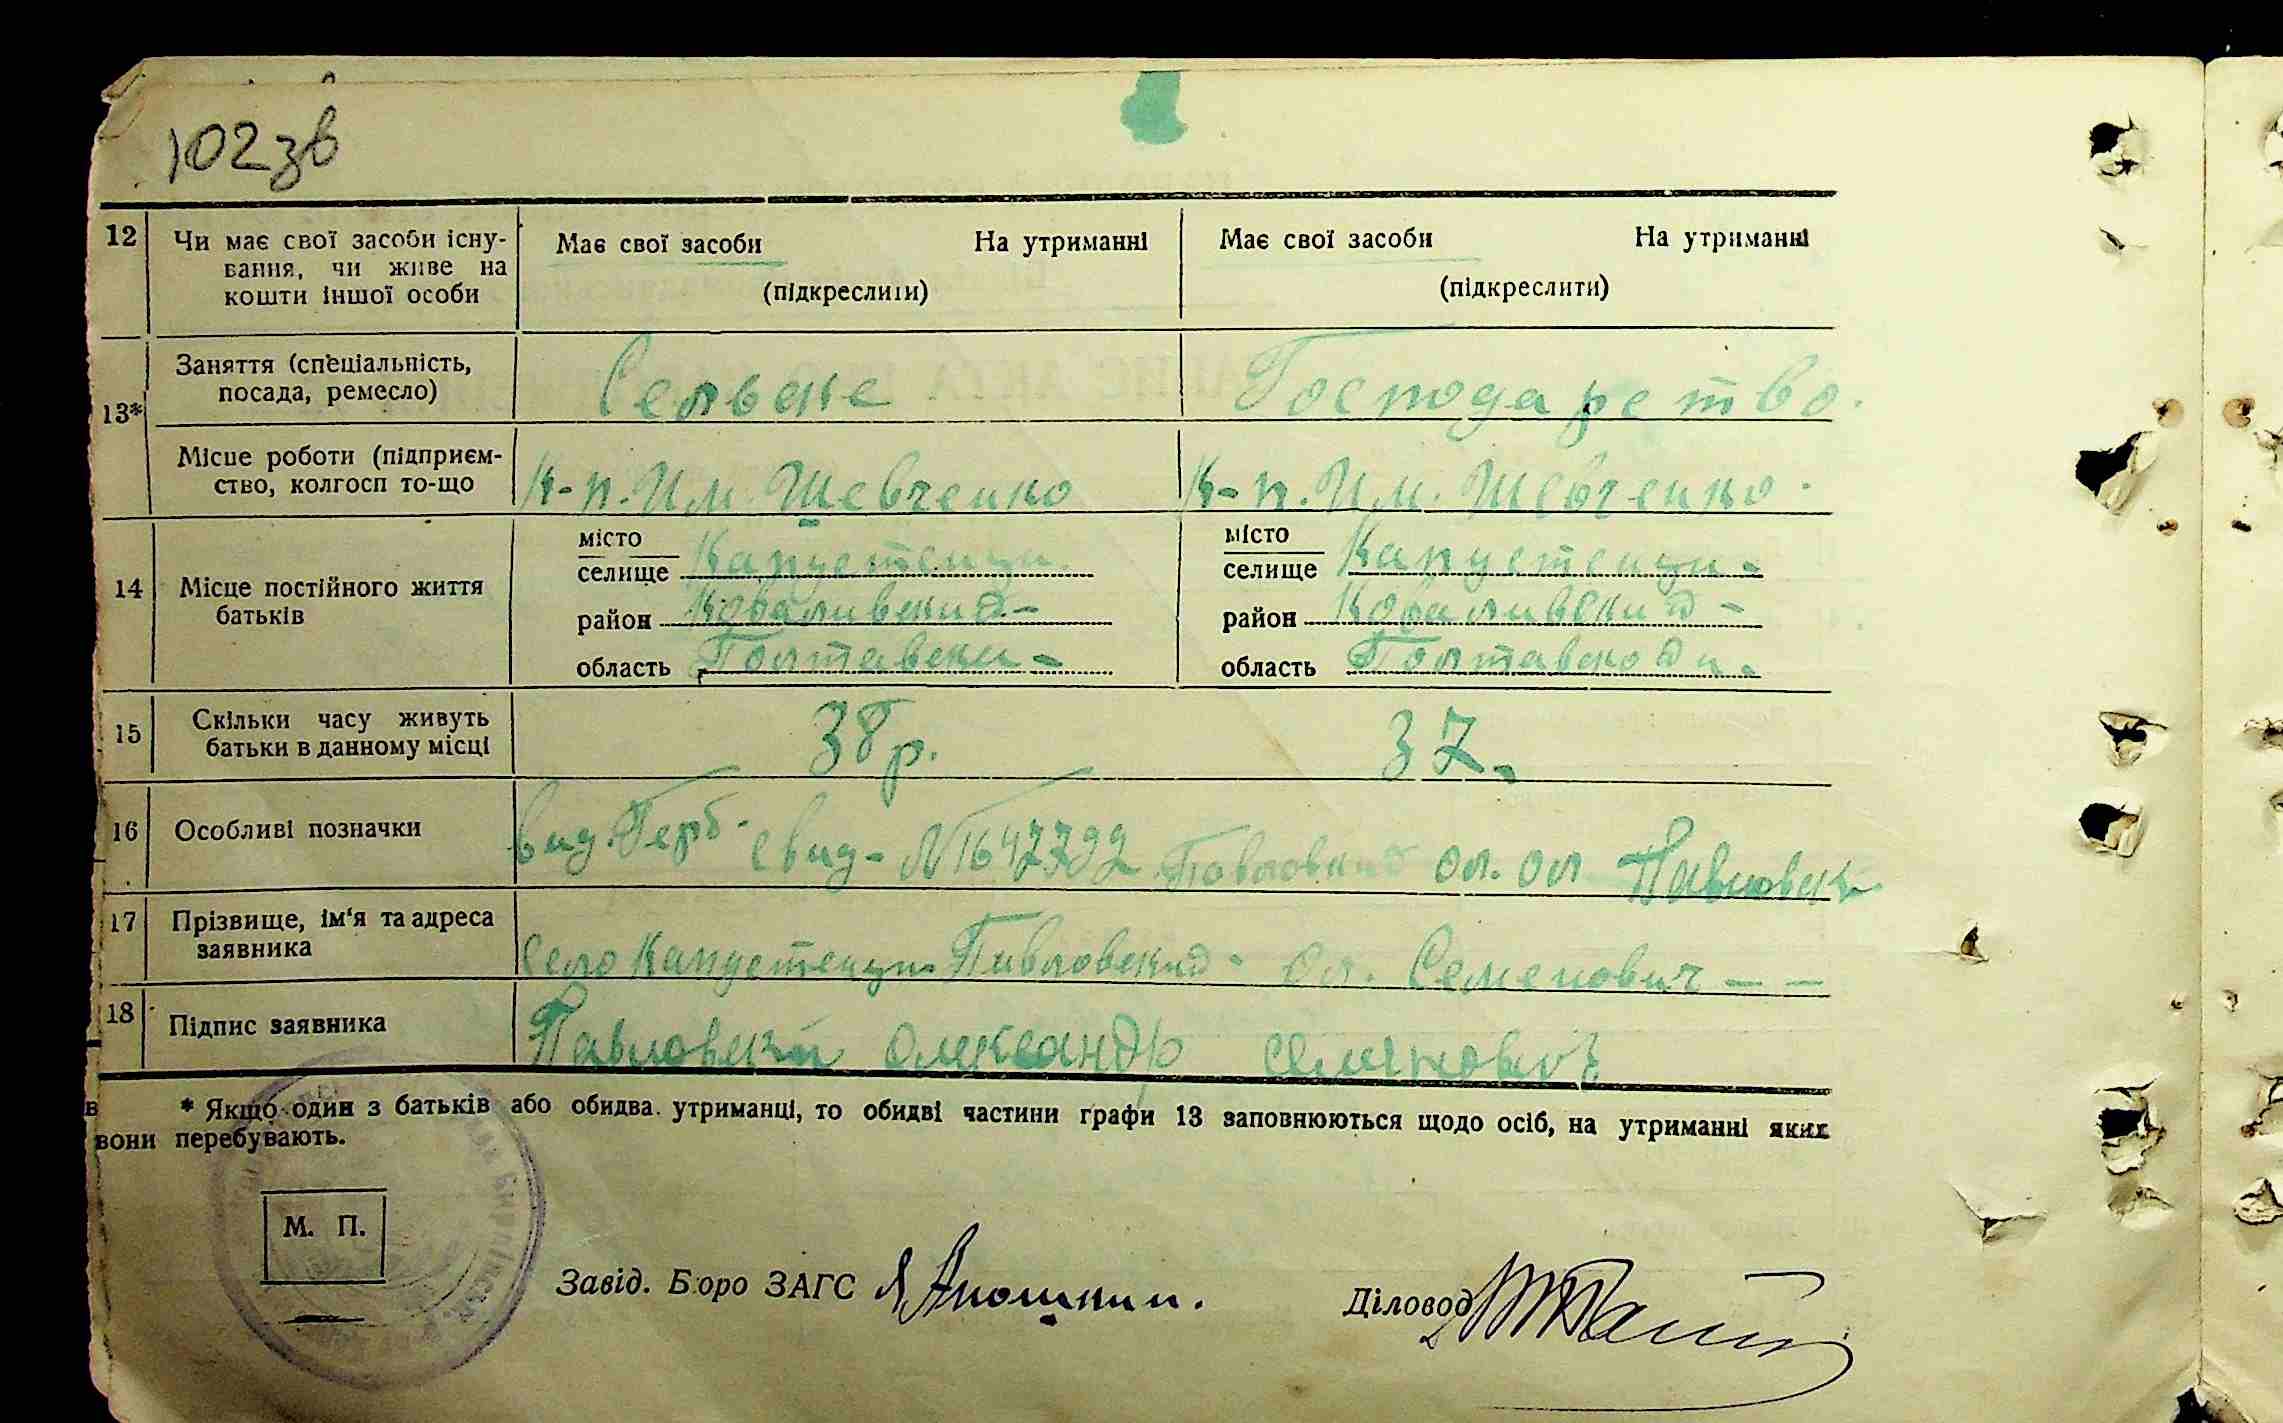 102зв
12 Чи має свої засоби існу- Має свої засоби На утриманні Має свої засоби На утриманні
вання, чи живе на
кошти іншої особи (підкреслити) (підкреслити)
13* Заняття (спеціальність, Сельске Господарство.
посада, ремесло)
Місце роботи (підприєм- К-п. Им. Шевченко К-п. Им. Шевченко.
ство, колгосп то-що
14 Місце постійного життя місто місто
батьків селище Капустенци. селище Капустенци-
район Коваливский- район Коваливский-
область Полтавски- область Полтавской
15 Скільки часу живуть 38р. 37.
батьки в данному місці
16 Особливі позначки вид. Герб. свид- №1647792 Павловский ол. ол Павловск
17 Прізвище, ім'я та адреса Село Капустенци Павловский- Ол. Семенович - -
заявника
18 Підпис заявника Павловский Олександр Семенович
* Якщо один з батьків або обидва утриманці, то обидві частини графи 13 заповнюються щодо осіб, на утриманні яких
вони перебувають.
М. П.
Завід. Бюро ЗАГС Діловод